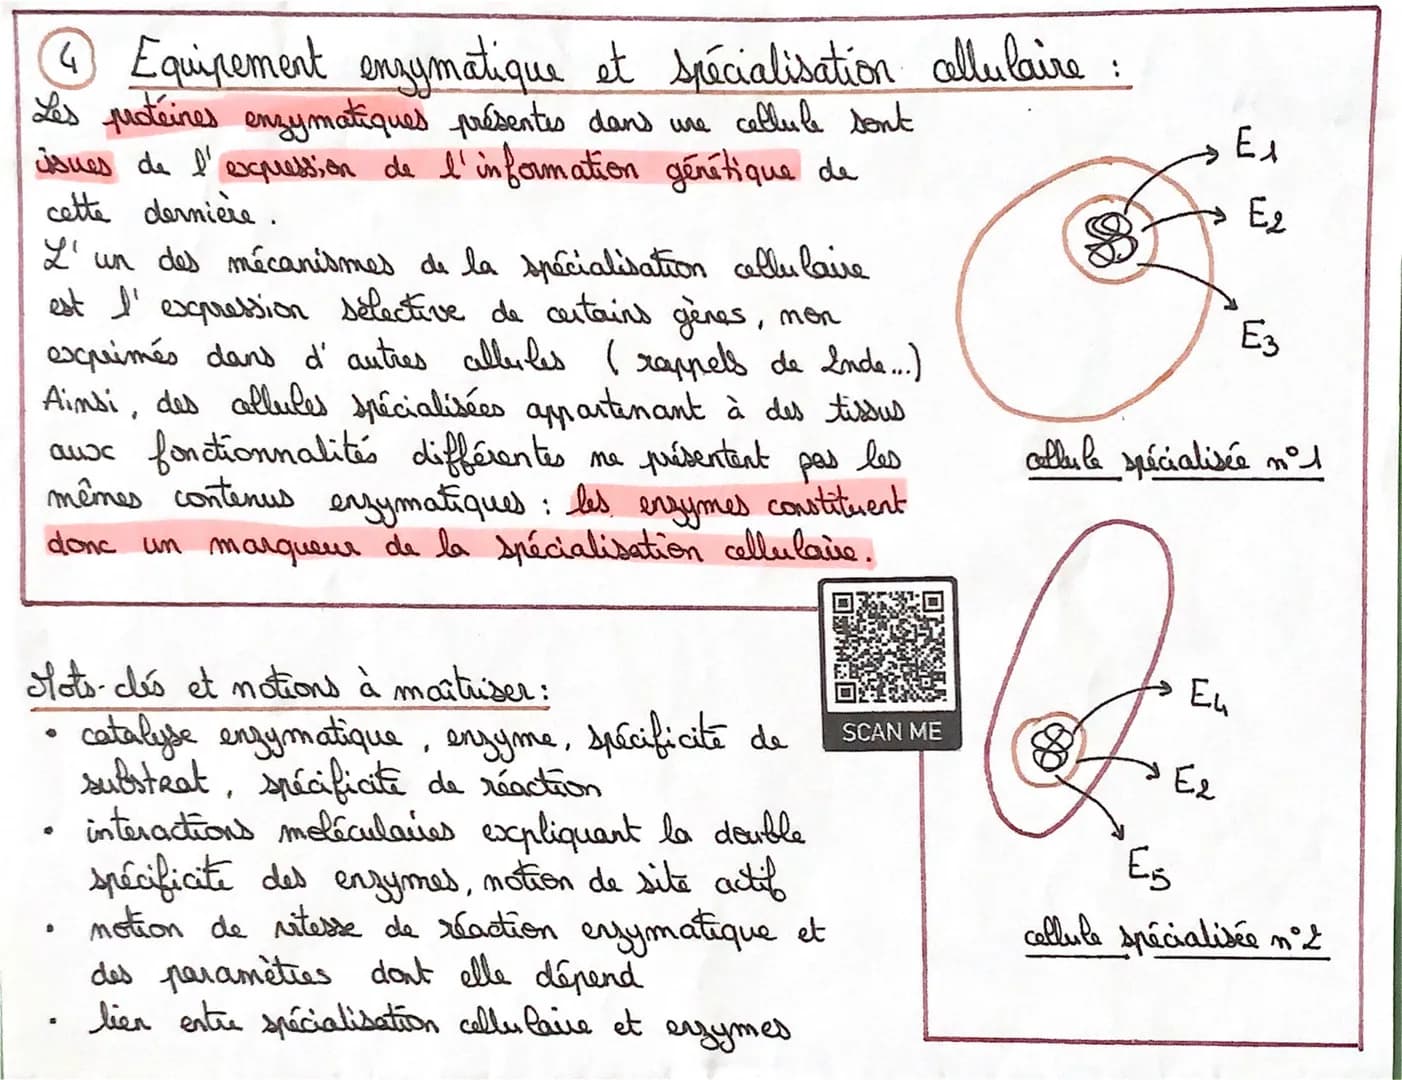 4 Equipement enzymatique et spécialisation cellulaire :
Les protéines enzymatiques présentes dans une cellule sont
issues de l'expression de l'information génétique de
cette dernière.
L'un des mécanismes de la spécialisation cellulaire
est l'expression sélective de certains gènes, non
exprimés dans d'autres cellules (rappels de 2nde...)
Ainsi, des cellules spécialisées appartenant à des tissus
aux fonctionnalités différentes ne présentent pas les
mêmes contenus enzymatiques : les enzymes constituent
donc un marqueur de la spécialisation cellulaire.
E1
E2
E3
cellule spécialisée n°1
E4
E2
E5
cellule spécialisée n°2
SCAN ME
Mots-clés et notions à maîtriser :
• catalyse enzymatique, enzyme, spécificité de
substrat, spécificité de réaction
• interactions moléculaires expliquant la double
spécificité des enzymes, notion de site actif
• notion de vitesse de réaction enzymatique et
des paramètres dont elle dépend
• lien entre spécialisation cellulaire et enzymes